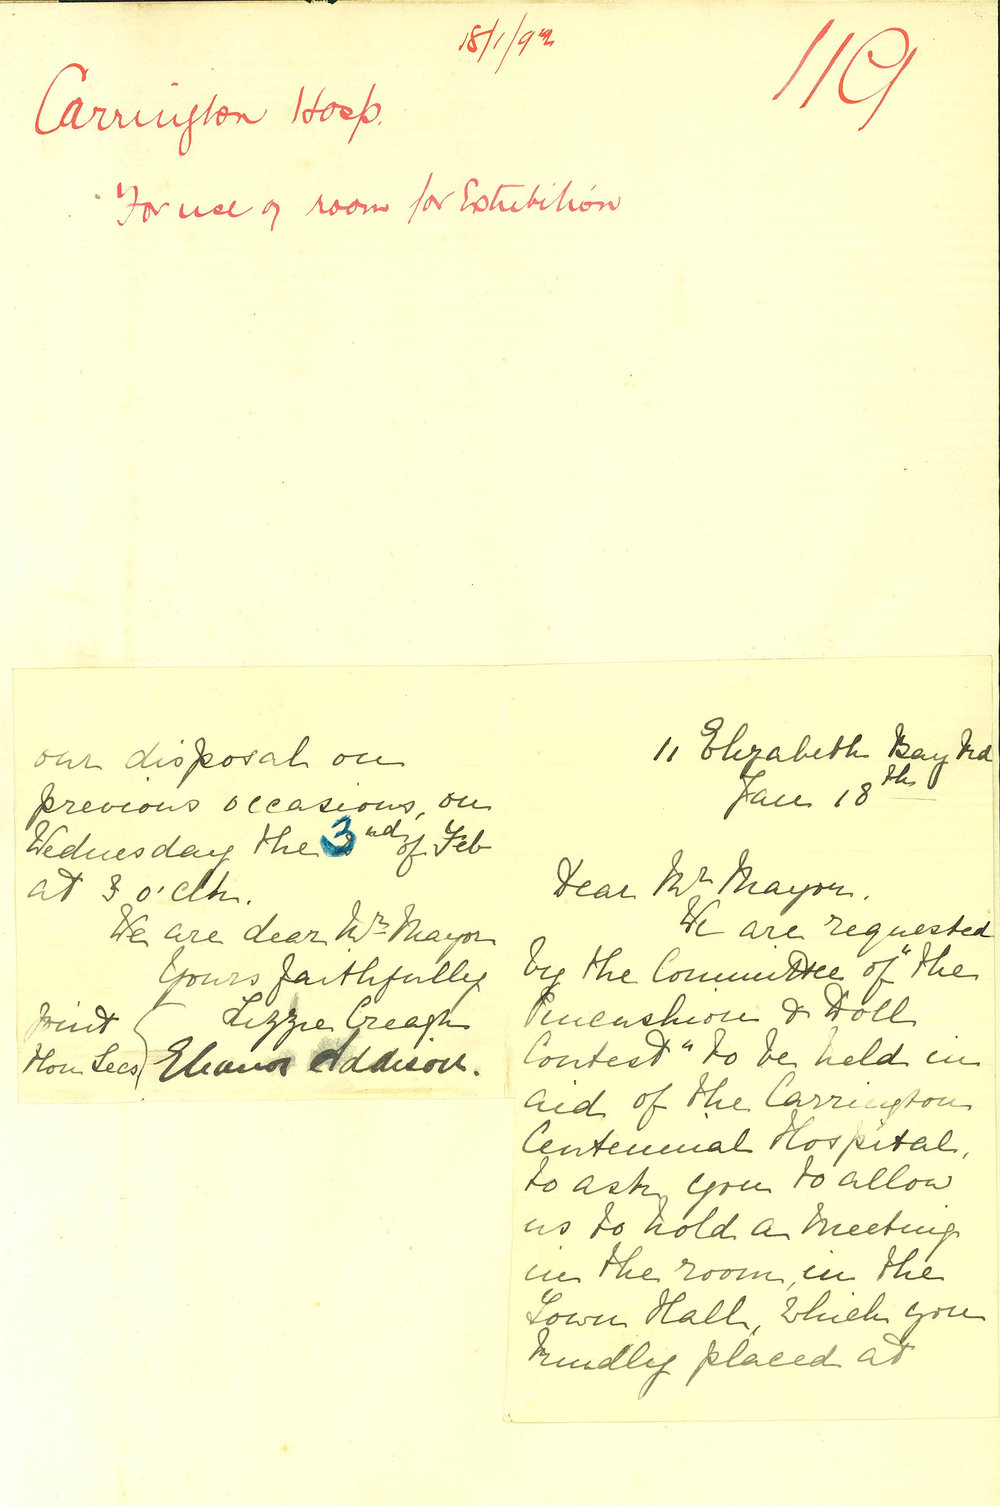 18/1/92
119
Carrington Hosp.
For use of room for Exhibition
11 Elizabeth Bay Rd
Jan 18th
Dear Mr Mayor.
We are requested
by the Committee of "the
Pincushion & Doll
Contest" to be held in
aid of the Carrington
Centennial Hospital,
to ask you to allow
us to hold a meeting
in the room, in the
Town Hall, which you
kindly placed at
our disposal on
previous occasions, on
Wednesday the 3nd of Feb
at 3 o'clk.
We are dear Mr Mayor
Yours faithfully
Joint Lizzie Creagh
Hon Secs Eleanor Addison.